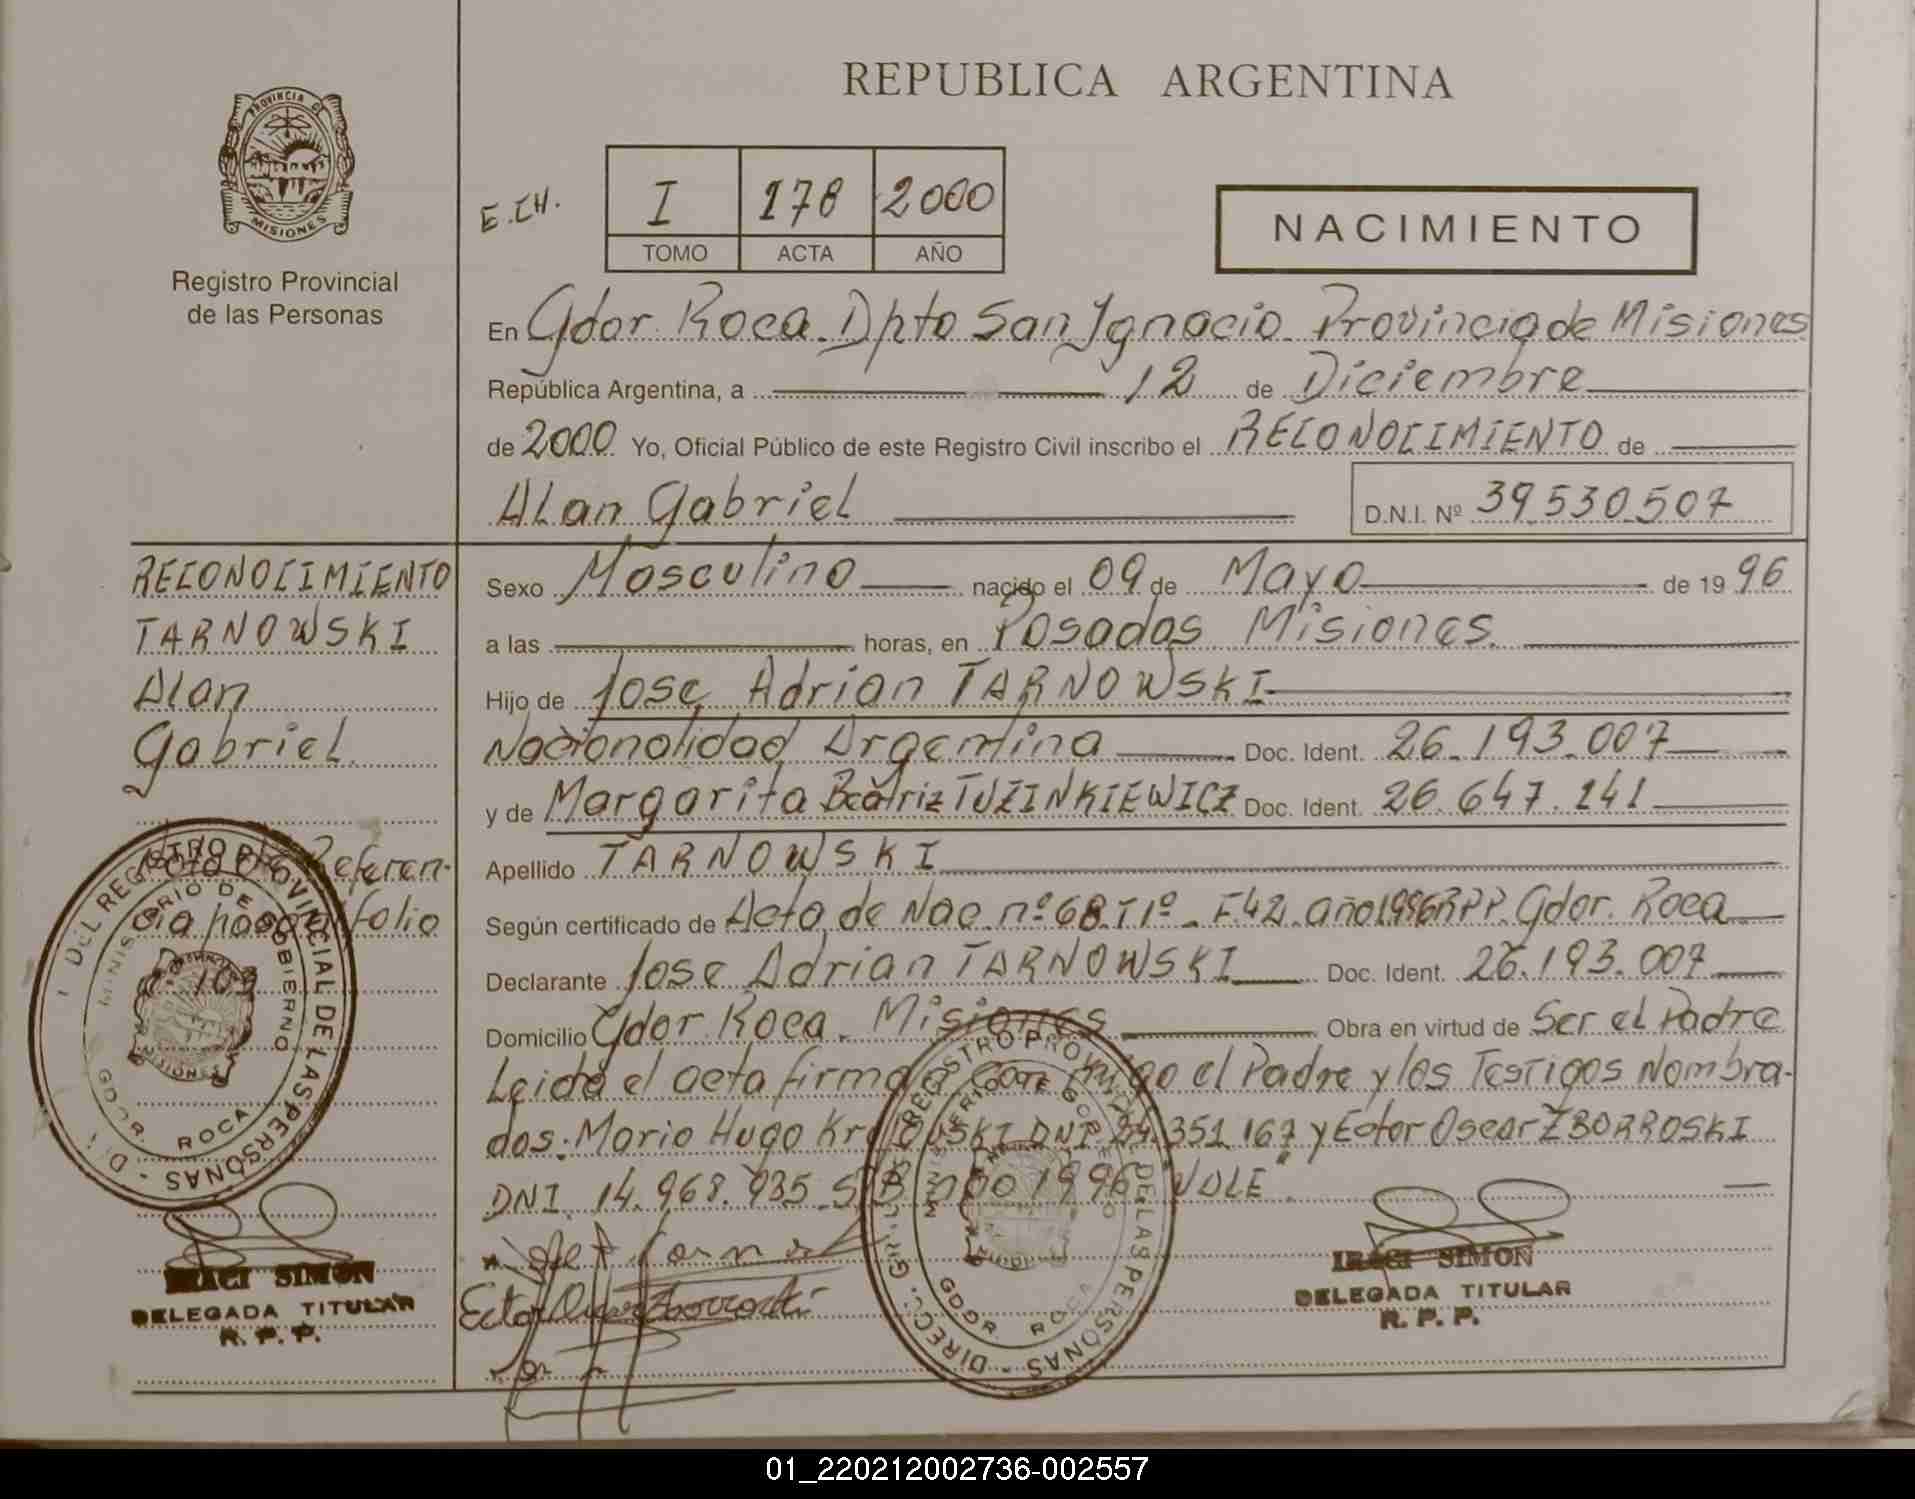 REPUBLICA ARGENTINA
PROVINCIA D
MISIONES
Registro Provincial
de las Personas
E.CH.
I 178 2000
TOMO ACTA AÑO
NACIMIENTO
En Gdor. Roca. Dpto San Ignacio. Provincia de Misiones
República Argentina, a 12 de Diciembre
de 2000. Yo, Oficial Público de este Registro Civil inscribo el RECONOCIMIENTO de
Alan Gabriel
D.N.I. Nº 39.530.507
RECONOCIMIENTO
TARNOWSKI
Alan
Gabriel.
Nota de Referen-
cia pasa a folio
109
Sexo Masculino nacido el 09 de Mayo de 19 96
a las horas, en Posadas Misiones.
Hijo de Jose Adrian TARNOWSKI
Nacionalidad Argentina Doc. Ident. 26.193.007
y de Margarita Beatriz TUZINKIEWICZ Doc. Ident. 26.647.241
Apellido TARNOWSKI
Según certificado de Acta de Nac. nº 68 T 1º - F.42. año 1996 RPP. Gdor. Roca
Declarante Jose Adrian TARNOWSKI Doc. Ident. 26.193.007
Domicilio Gdor. Roca. Misiones Obra en virtud de Ser el Padre
Leida el acta firma el Padre y los Testigos Nombra-
dos: Mario Hugo DNI 24.351.167 y Ector Oscar ZBORROSKI
DNI. 14.968.935. 1996 VALE.
Ector Oscar Zborroski
DEL REGISTRO PROVINCIAL DE LAS PERSONAS
MINISTERIO DE GOBIERNO
GDOR. ROCA
MISIONES
IRACI SIMON
DELEGADA TITULAR
R. P. P.
DIRECC. GRAL. DEL REGISTRO PROVINCIAL DE LAS PERSONAS
MINISTERIO DE GOBIERNO
GDOR. ROCA
IRACI SIMON
DELEGADA TITULAR
R. P. P.
01_220212002736-002557